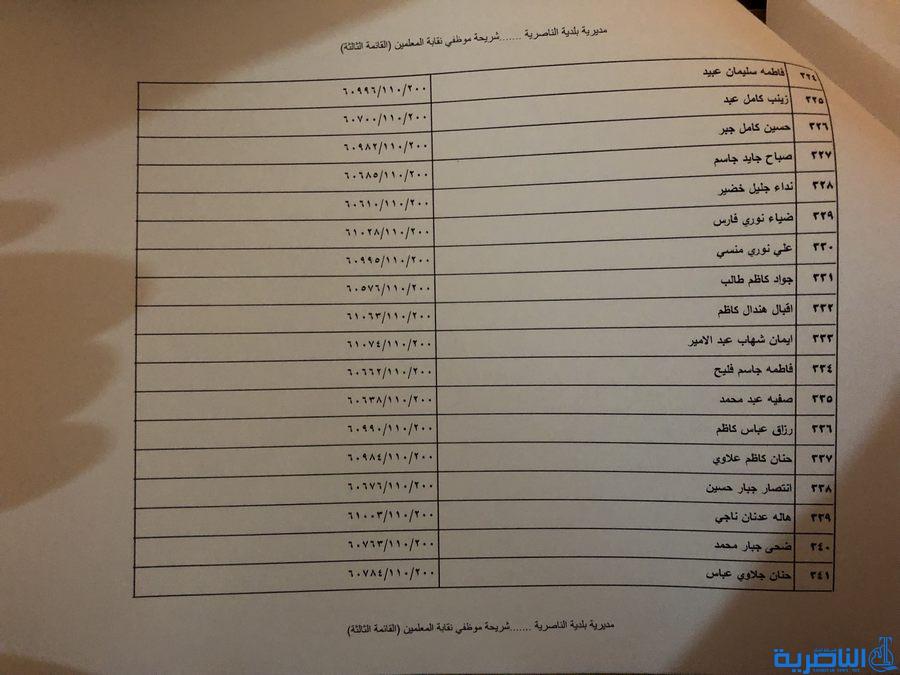 مديرية بلدية الناصرية .......شريحة موظفي نقابة المعلمين (القائمة الثالثة)
٣٢٤ فاطمه سليمان عبيد ٦٠٩٩٦/١١٠/٢٠٠
٣٢٥ زينب كامل عبد ٦٠٧٠٠/١١٠/٢٠٠
٣٢٦ حسين كامل جبر ٦٠٩٨٢/١١٠/٢٠٠
٣٢٧ صباح جايد جاسم ٦٠٦٨٥/١١٠/٢٠٠
٣٢٨ نداء جليل خضير ٦٠٦١٠/١١٠/٢٠٠
٣٢٩ ضياء نوري فارس ٦١٠٢٨/١١٠/٢٠٠
٣٣٠ علي نوري منسي ٦٠٩٩٥/١١٠/٢٠٠
٣٣١ جواد كاظم طالب ٦٠٥٧٦/١١٠/٢٠٠
٣٣٢ اقبال هندال كاظم ٦١٠٦٣/١١٠/٢٠٠
٣٣٣ ايمان شهاب عبد الامير ٦١٠٧٤/١١٠/٢٠٠
٣٣٤ فاطمه جاسم فليح ٦٠٦٦٢/١١٠/٢٠٠
٣٣٥ صفيه عبد محمد ٦٠٦٣٨/١١٠/٢٠٠
٣٣٦ رزاق عباس كاظم ٦٠٩٩٠/١١٠/٢٠٠
٣٣٧ حنان كاظم علاوي ٦٠٩٨٤/١١٠/٢٠٠
٣٣٨ انتصار جبار حسين ٦٠٦٧٦/١١٠/٢٠٠
٣٣٩ هاله عدنان ناجي ٦١٠٠٣/١١٠/٢٠٠
٣٤٠ ضحى جبار محمد ٦٠٧٦٣/١١٠/٢٠٠
٣٤١ حنان جلاوي عباس ٦٠٧٨٤/١١٠/٢٠٠
مديرية بلدية الناصرية .......شريحة موظفي نقابة المعلمين (القائمة الثالثة)
الناصرية